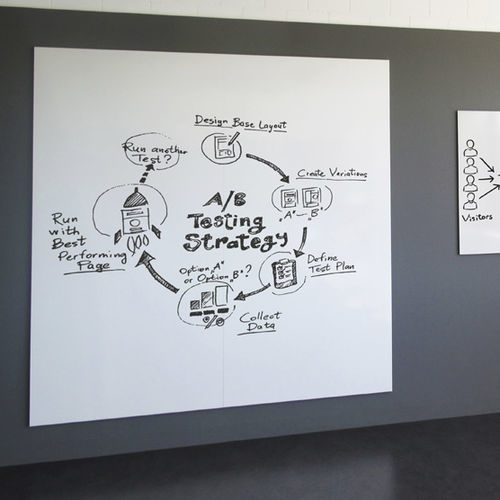 Design Base Layout
Create Variations
"A" – "B"
Define
Test Plan
Collect
Data
Option "A"
or Option "B"?
%
Run
with
Best
Performing
Page
Run another
Test?
A/B
Testing
Strategy
Visitors